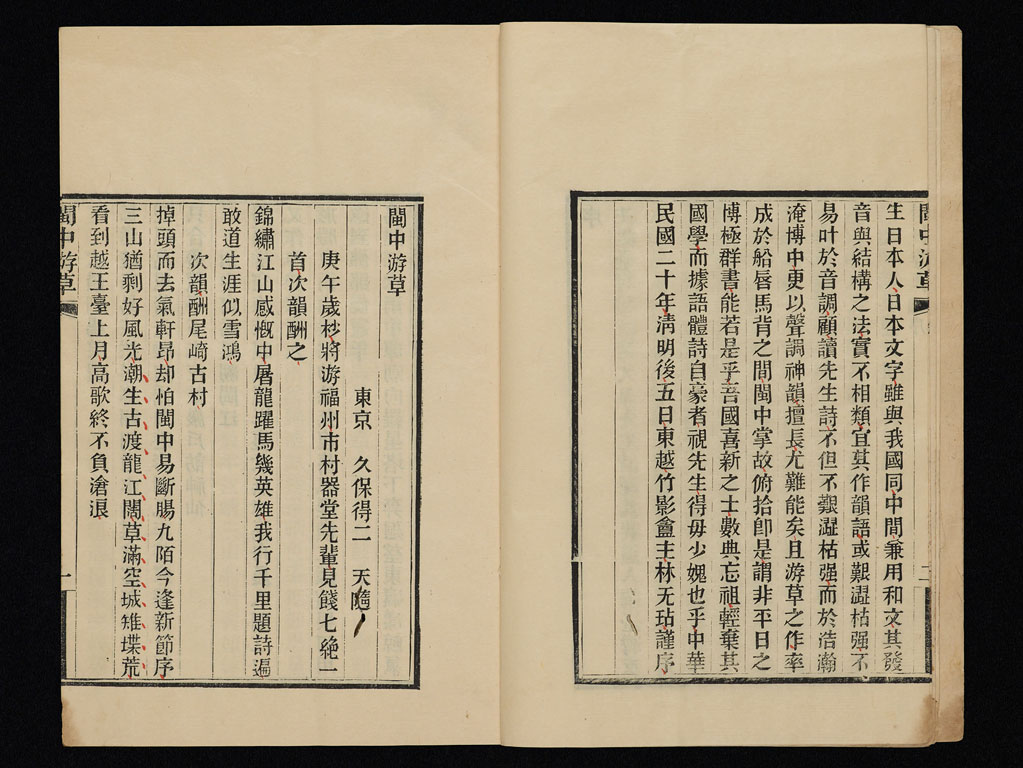 閩中游草
二
生日本人日本文字雖與我國同中間兼用和文其發
音與結構之法實不相類宜其作韻語或艱澀枯强不
易叶於音調顧讀先生詩不但不艱澀枯强而於浩瀚
淹博中更以聲調神韻擅長尤難能矣且游草之作率
成於船唇馬背之間閩中掌故俯拾卽是謂非平日之
博極羣書能若是乎吾國喜新之士數典忘祖輕棄其
國學而據語體詩自豪者視先生得毋少媿也乎中華
民國二十年淸明後五日東越竹影盦主林无玷謹序
閩中游草
東京 久保得二 天隨
庚午歲杪將游福州市村器堂先輩見餞七絶一
首次韻酬之
錦繡江山感慨中屠龍躍馬幾英雄我行千里題詩遍
敢道生涯似雪鴻
次韻酬尾崎古村
掉頭而去氣軒昂却怕閩中易斷腸九陌今逢新節序
三山猶剩好風光潮生古渡龍江闊草滿空城雉堞荒
看到越王臺上月高歌終不負滄浪
閩中游草
一